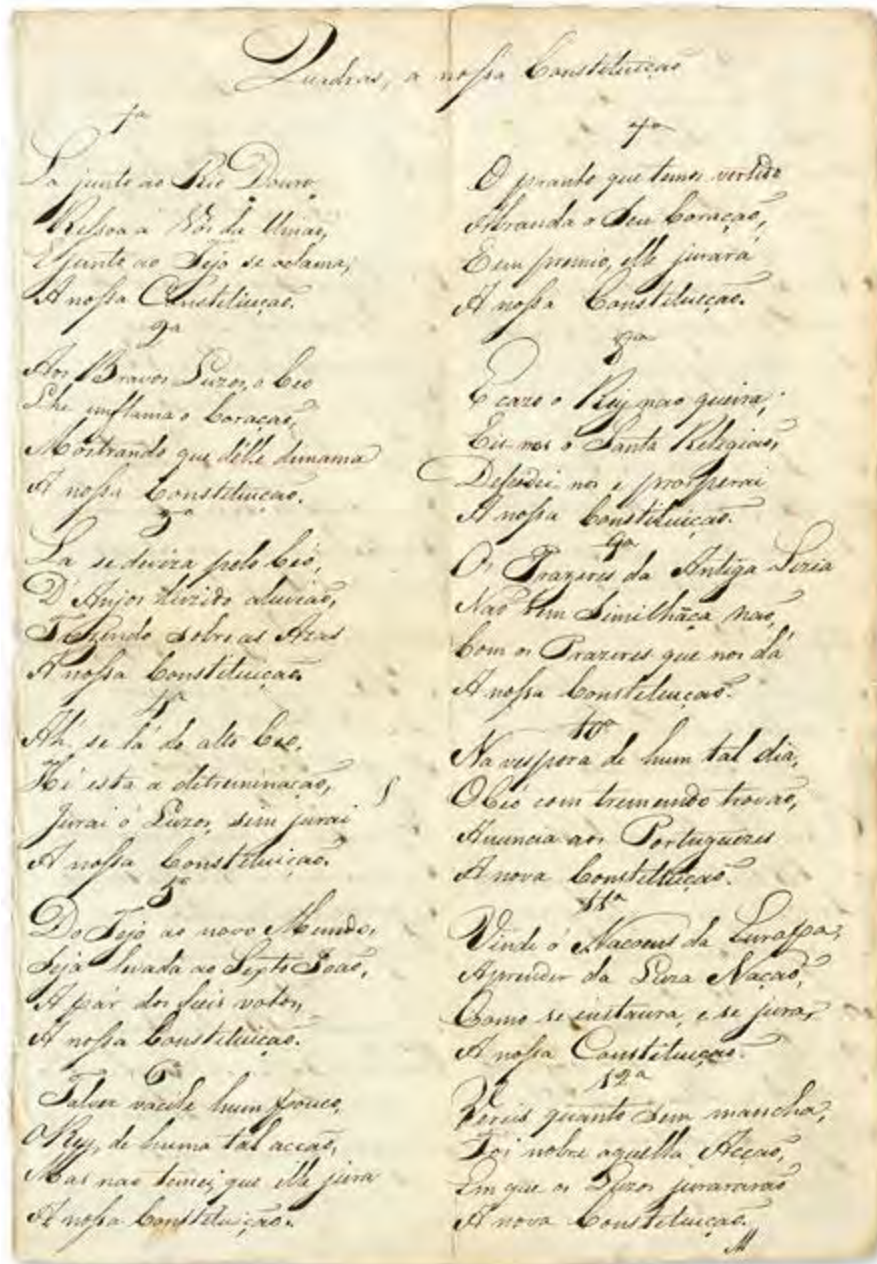 Quadras, a nossa Constituiçaõ
1ª
La junto ao Rio Douro
Ressoa a Vós da Uniaõ,
E junto ao Tejo se aclama,
A nossa Constituiçaõ.
2ª
Aos Bravos Luzos, o Ceo
Lhe imflama o Coraçaõ,
Mostrando que délle dimama
A nossa Constituiçaõ.
3ª
La se diviza pelo Ceo,
D'Anjos luzido aluviaõ,
Trazendo sobre as Azas
A nossa Constituiçaõ
4ª
Ah! se lá do alto Ceo,
Hé esta a detreminaçaõ,
Jurai ó Luzos, sim jurai
A nossa Constituiçaõ.
5ª
Do Tejo ao novo Mundo,
Seja levada ao Sexto Joaõ,
A pár dos seus votos,
A nossa Constituiçaõ.
6ª
Talves vacile hum pouco,
O Rey, de huma tal acçaõ,
Mas naõ temei, que elle jura
A nossa Constituiçaõ.
7ª
O pranto que temos vertido
Abranda o Seu Coraçaõ,
E em premio, elle jurará
A nossa Constituiçaõ.
8ª
E cazo o Rey nao queira,
Eis nos o Santa Religiaõ,
Defedei nos e prosperai
A nossa Constituiçaõ.
9ª
Os Prazeres da Antiga Lizia
Naõ tem Similhãça naõ,
Com os Prazeres que nos dá
A nossa Constituiçaõ.
10ª
Na vespora de hum tal dia,
O Ceo com tremendo trovaõ,
Anuncia aos Portuguezes
A nova Constituiçaõ.
11ª
Vinde ó Nacoens da Europpa,
Aprender da Luza Naçaõ,
Como se instaura, e se jura,
A nossa Constituiçaõ.
12ª
Vereis quanto sem mancha,
Foi nobre aquella Acçaõ,
Em que os Luzos jurararaõ
A nova Constituiçaõ.